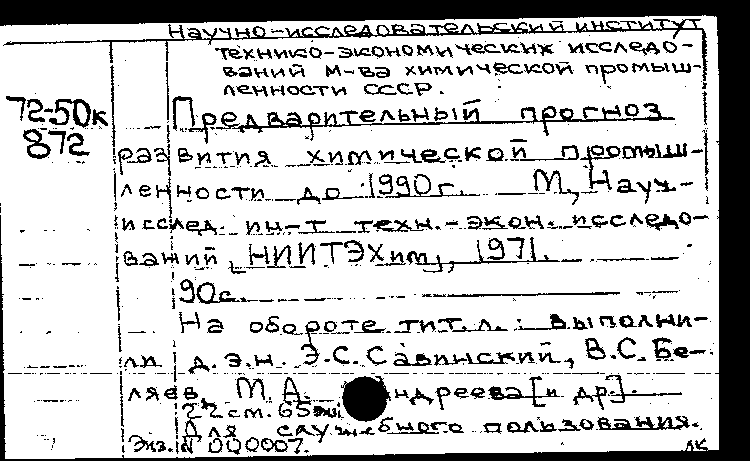 Научно-исследовательский институт
технико-экономических исследо-
ваний М-ва химической промыш-
ленности СССР.
72-50к
872
Предварительный прогноз
развития химической промыш-
ленности до 1990г. М., Науч.-
исслед. ин-т техн.-экон. исследо-
ваний, [НИИТЭХим], 1971.
90с.
На обороте тит.л.: выполни-
ли д.э.н. Э.С.Савинский, В.С.Бе-
ляев, М.А. Андреева [и др.].
22 см. 65 экз.
Для служебного пользования.
Экз. № 000007.
ЛК